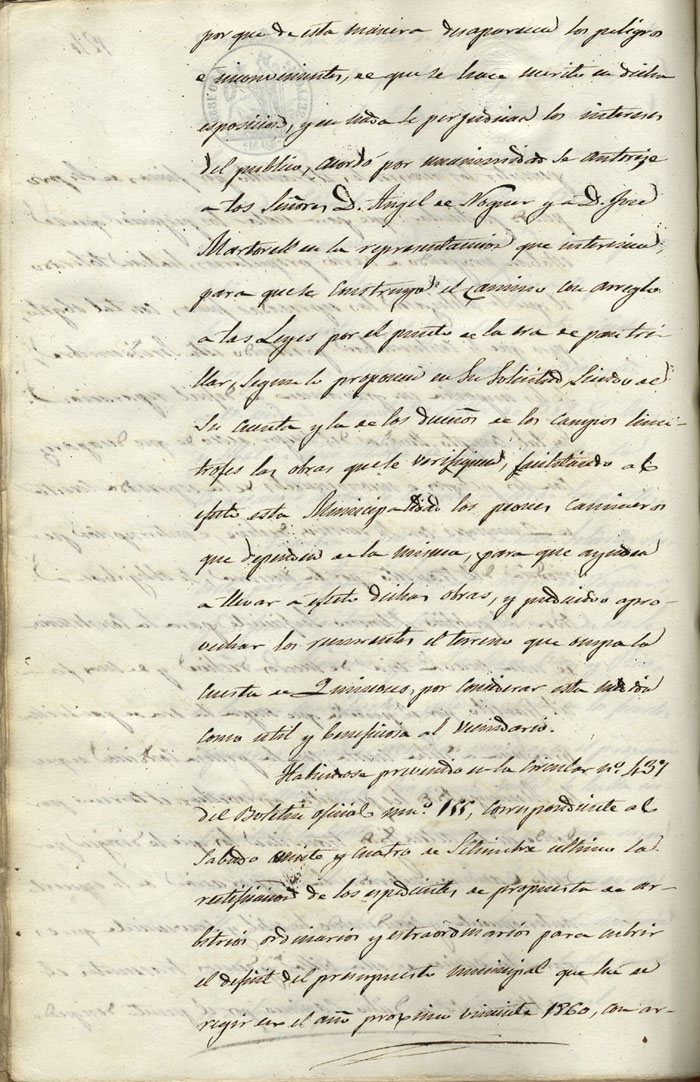 por que de esta manera desaparecen los peligros
é inconvenientes, de que se hace merito en dicha
esposicion, y en nada se perjudican los intereses
del publico, acordó por unanimidad se autorize
a los Señores D. Angel de Noguer y a D. José
Martorell en la representacion que intervienen,
para que se construya el camino con arreglo
a las Leyes por el punto de la era de pan tri-
llar, segun lo proponen en su solicitud, siendo de
su cuenta y la de los dueños de los campos limi-
trofes las obras que se verifiquen, facilitando al
efeto esta Municipalidad los peones camineros
que dependen de la misma, para que ayuden
a llevar a efeto dichas obras, y pudiendo apro-
vechar los recurrentes el terreno que ocupa la
cuesta de Quinsoces, por considerar esta medida
como util y beneficiosa al vecindario.
Habiendose prevenido en la circular nº 437
del Boletin oficial numº 155, correspondiente al
Sabado veinte y cuatro de Setiembre ultimo la
retificacion de los espedientes de propuesta de ar-
bitrios ordinarios y estraordinarios para cubrir
el deficit del presupuesto municipal que ha de
regir en el año proximo viniente 1860, con ar-